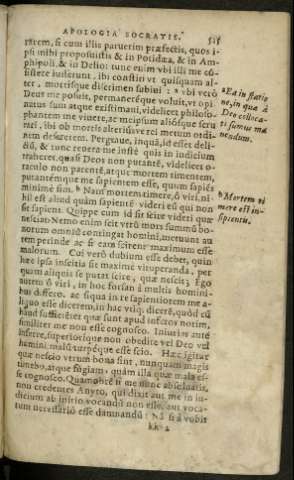 APOLOGIA SOCRATIS. 515
rarem, si cum illis paruerim præfectis, quos i-
psi mihi proposuistis & in Potidæa, & in Am-
phipoli, & in Delio: tunc enim vbi illi me cõ-
sistere iusserunt, ibi constiti vt quisquam al-
ter, mortisque discrimen subiui: a vbi verò
Deus me posuit, permanereque voluit, vt opi-
natus sum atque existimaui, videlicet philoso-
phantem me viuere, ac meipsum aliósque scru
tari, ibi ob mortis alteriusve rei metum ordi-
nem desererem. Pergraue, inquã, id esset deli-
ctũ, & tunc reuera me iustè quis in iudicium
traheret, quasi Deos non putantẽ, videlicet o-
raculo non parentẽ, atque mortem timentem,
putantẽmque me sapientem esse, quum sapiẽs
minimè sim. b Nam mortem timere, ô viri, ni-
hil est aliud quàm sapientẽ videri eũ qui non
sit sapiens. Quippe cum id sit scire videri quæ
nesciat: Nemo enim scit verũ mors summũ bo-
norum omniũ contingat homini, metuunt au
tem perinde ac si eam scirent maximum esse
malorum. Cui verò dubium esse debet, quin
hæc ipsa inscitia sit maximè vituperanda, per
quam aliquis se putat scire, quæ nescit? Ego
autem ô viri, in hoc forsan à multis homini-
bus differo. ac siqua in re sapientiorem me a-
liquo esse dicerem, in hac vtiq. dicerẽ, quòd cũ
haud sufficiẽter quæ sunt apud inferos norim,
similiter me non esse cognosco. Iniurias autẽ
inferre, superiorique non obedire vel Deo vel
homini, malũ turpéque esse scio. Hæc igitur
quæ nescio vtrum bona sint, nunquam magis
timebo, atque fugiam, quàm illa quæ mala es-
se cognosco. Quamobrẽ si me nunc absoluatis,
non credentes Anyto, qui dixit aut me in iu-
dicium ab initio vocandũ non esse, aut voca-
tum necessariò esse damnandũ: Nã si à vobis
kk 2
a Ea in statio
ne, in qua à
Deo colloca-
ti sumus ma
nendum.
b Mortem ti
mere est in-
sipientis.